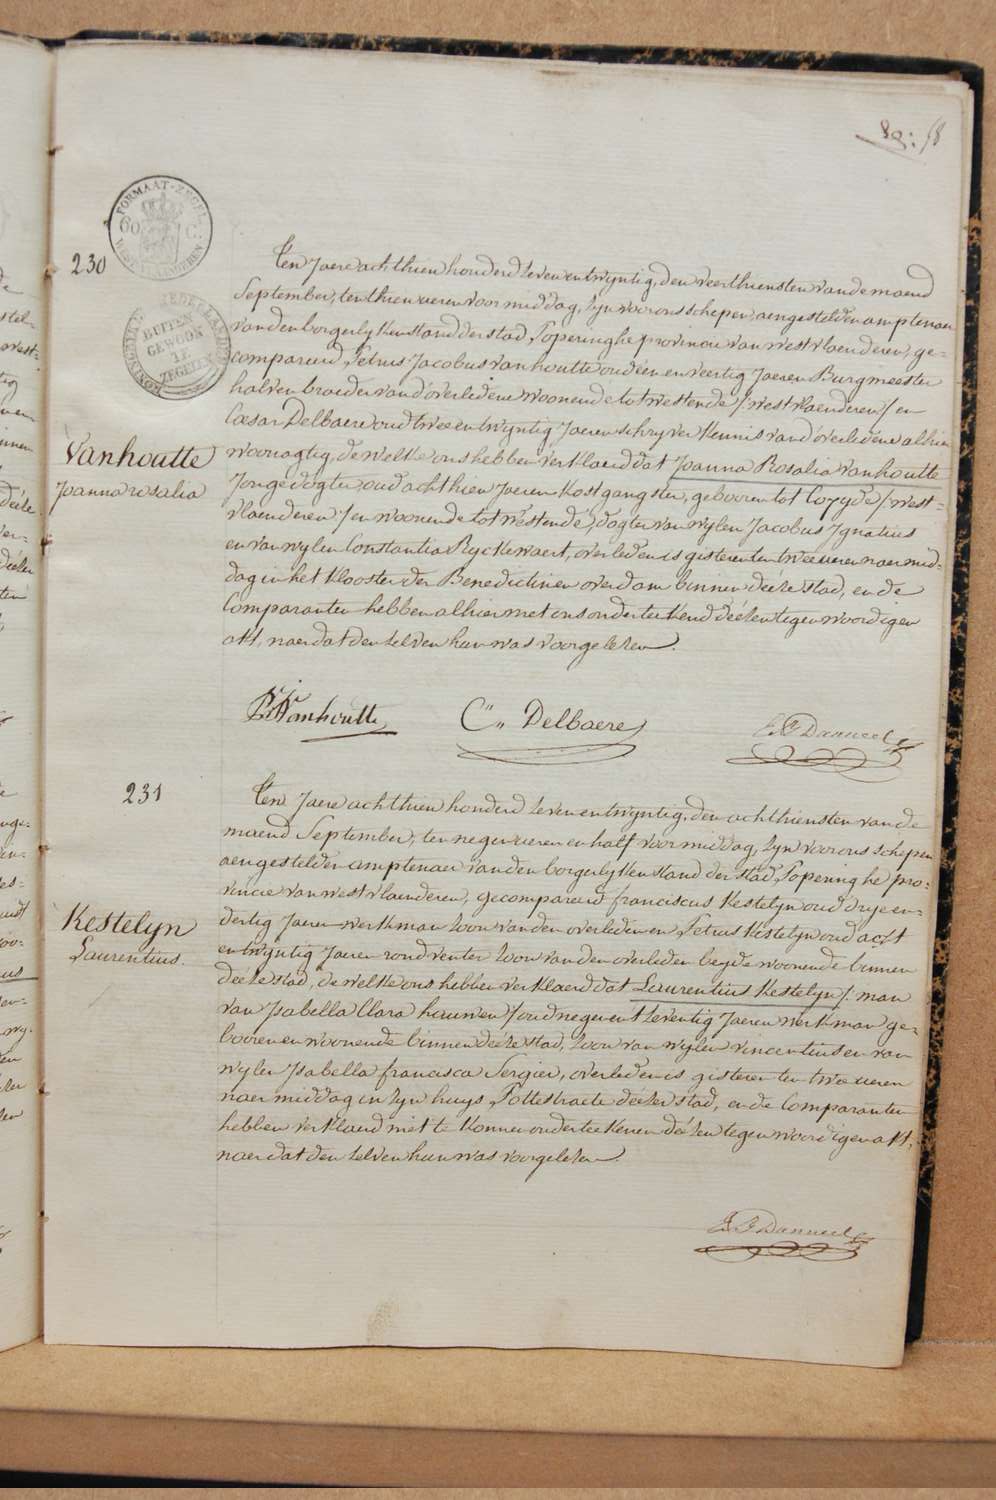 89:
58
FORMAAT-ZEGEL
60 C:
WEST-VLAANDEREN
NEDERLANDEN
BUITEN
GEWOON
ZEGELEN
230
Ten Jaere achthien honderd zeven en twyntig, den veerthiensten van de maend
September, ten thien ueren voormiddag, zyn voor ons schepen, aengestelden amptenaer
van den borgerlyken stand der stad Poperinghe provincie van westvlaenderen, ge-
compareerd Petrus Jacobus Vanhoutte oud een en veertig Jaeren Burgmeester
halven broeder van d'overledene woonende tot westende /: westvlaenderen :/ en
Cæsar Delbaere oud twee en twyntig Jaeren schryver kennis van d'overledene alhier
woonagtig, de welke ons hebben verklaerd dat Joanna Rosalia Vanhoutte
Vanhoutte
Joanna rosalia
Jonge dogter, oud achthien Jaeren kostgangster, gebooren tot Cozyde /: west-
vlaenderen :/ en woonende tot westende, dogter van wylen Jacobus Ignatius
en van wylen Constantia Ryckewaert, overleden is gisteren ten twee ueren naermid-
dag in het klooster der Benedictinen overdam binnen deéze stad, en de
Comparanten hebben alhier met ons onderteekend deézen tegenwoordigen
akt, naer dat den zelven hun was voorgelezen.
P: J: Vanhoutte
C" " Delbaere
Danneel
231
Ten Jaere achthien honderd zeven en twyntig, den achthiensten van de
maend September, ten negen ueren en half voormiddag, zyn voor ons schepen
aengestelden amptenaer van den borgerlyken stand der stad Poperinghe pro-
vincie van westvlaenderen, gecompareerd franciscus Kestelyn oud drye en
dertig Jaeren werkman zoon van den overledenen, Petrus Kestelyn oud acht
Kestelyn
Laurentius.
en twyntig Jaeren rondventer zoon van den overleden beyde woonende binnen
deéze stad, de welke ons hebben verklaerd dat Laurentius Kestelyn /: man
van Isabella Clara hauwen :/ oud negen en tzeventig Jaeren werkman ge-
booren en woonende binnen deéze stad, zoon van wylen vincentius en van
wylen Isabella francisca Sergier, overleden is gisteren ten twee ueren
naermiddag in zyn huys Pottestraete deézer stad, en de Comparanten
hebben verklaerd niet te konnen onderteekenen deézen tegenwoordigen akt,
naer dat den zelven hun was voorgelezen.
Danneel